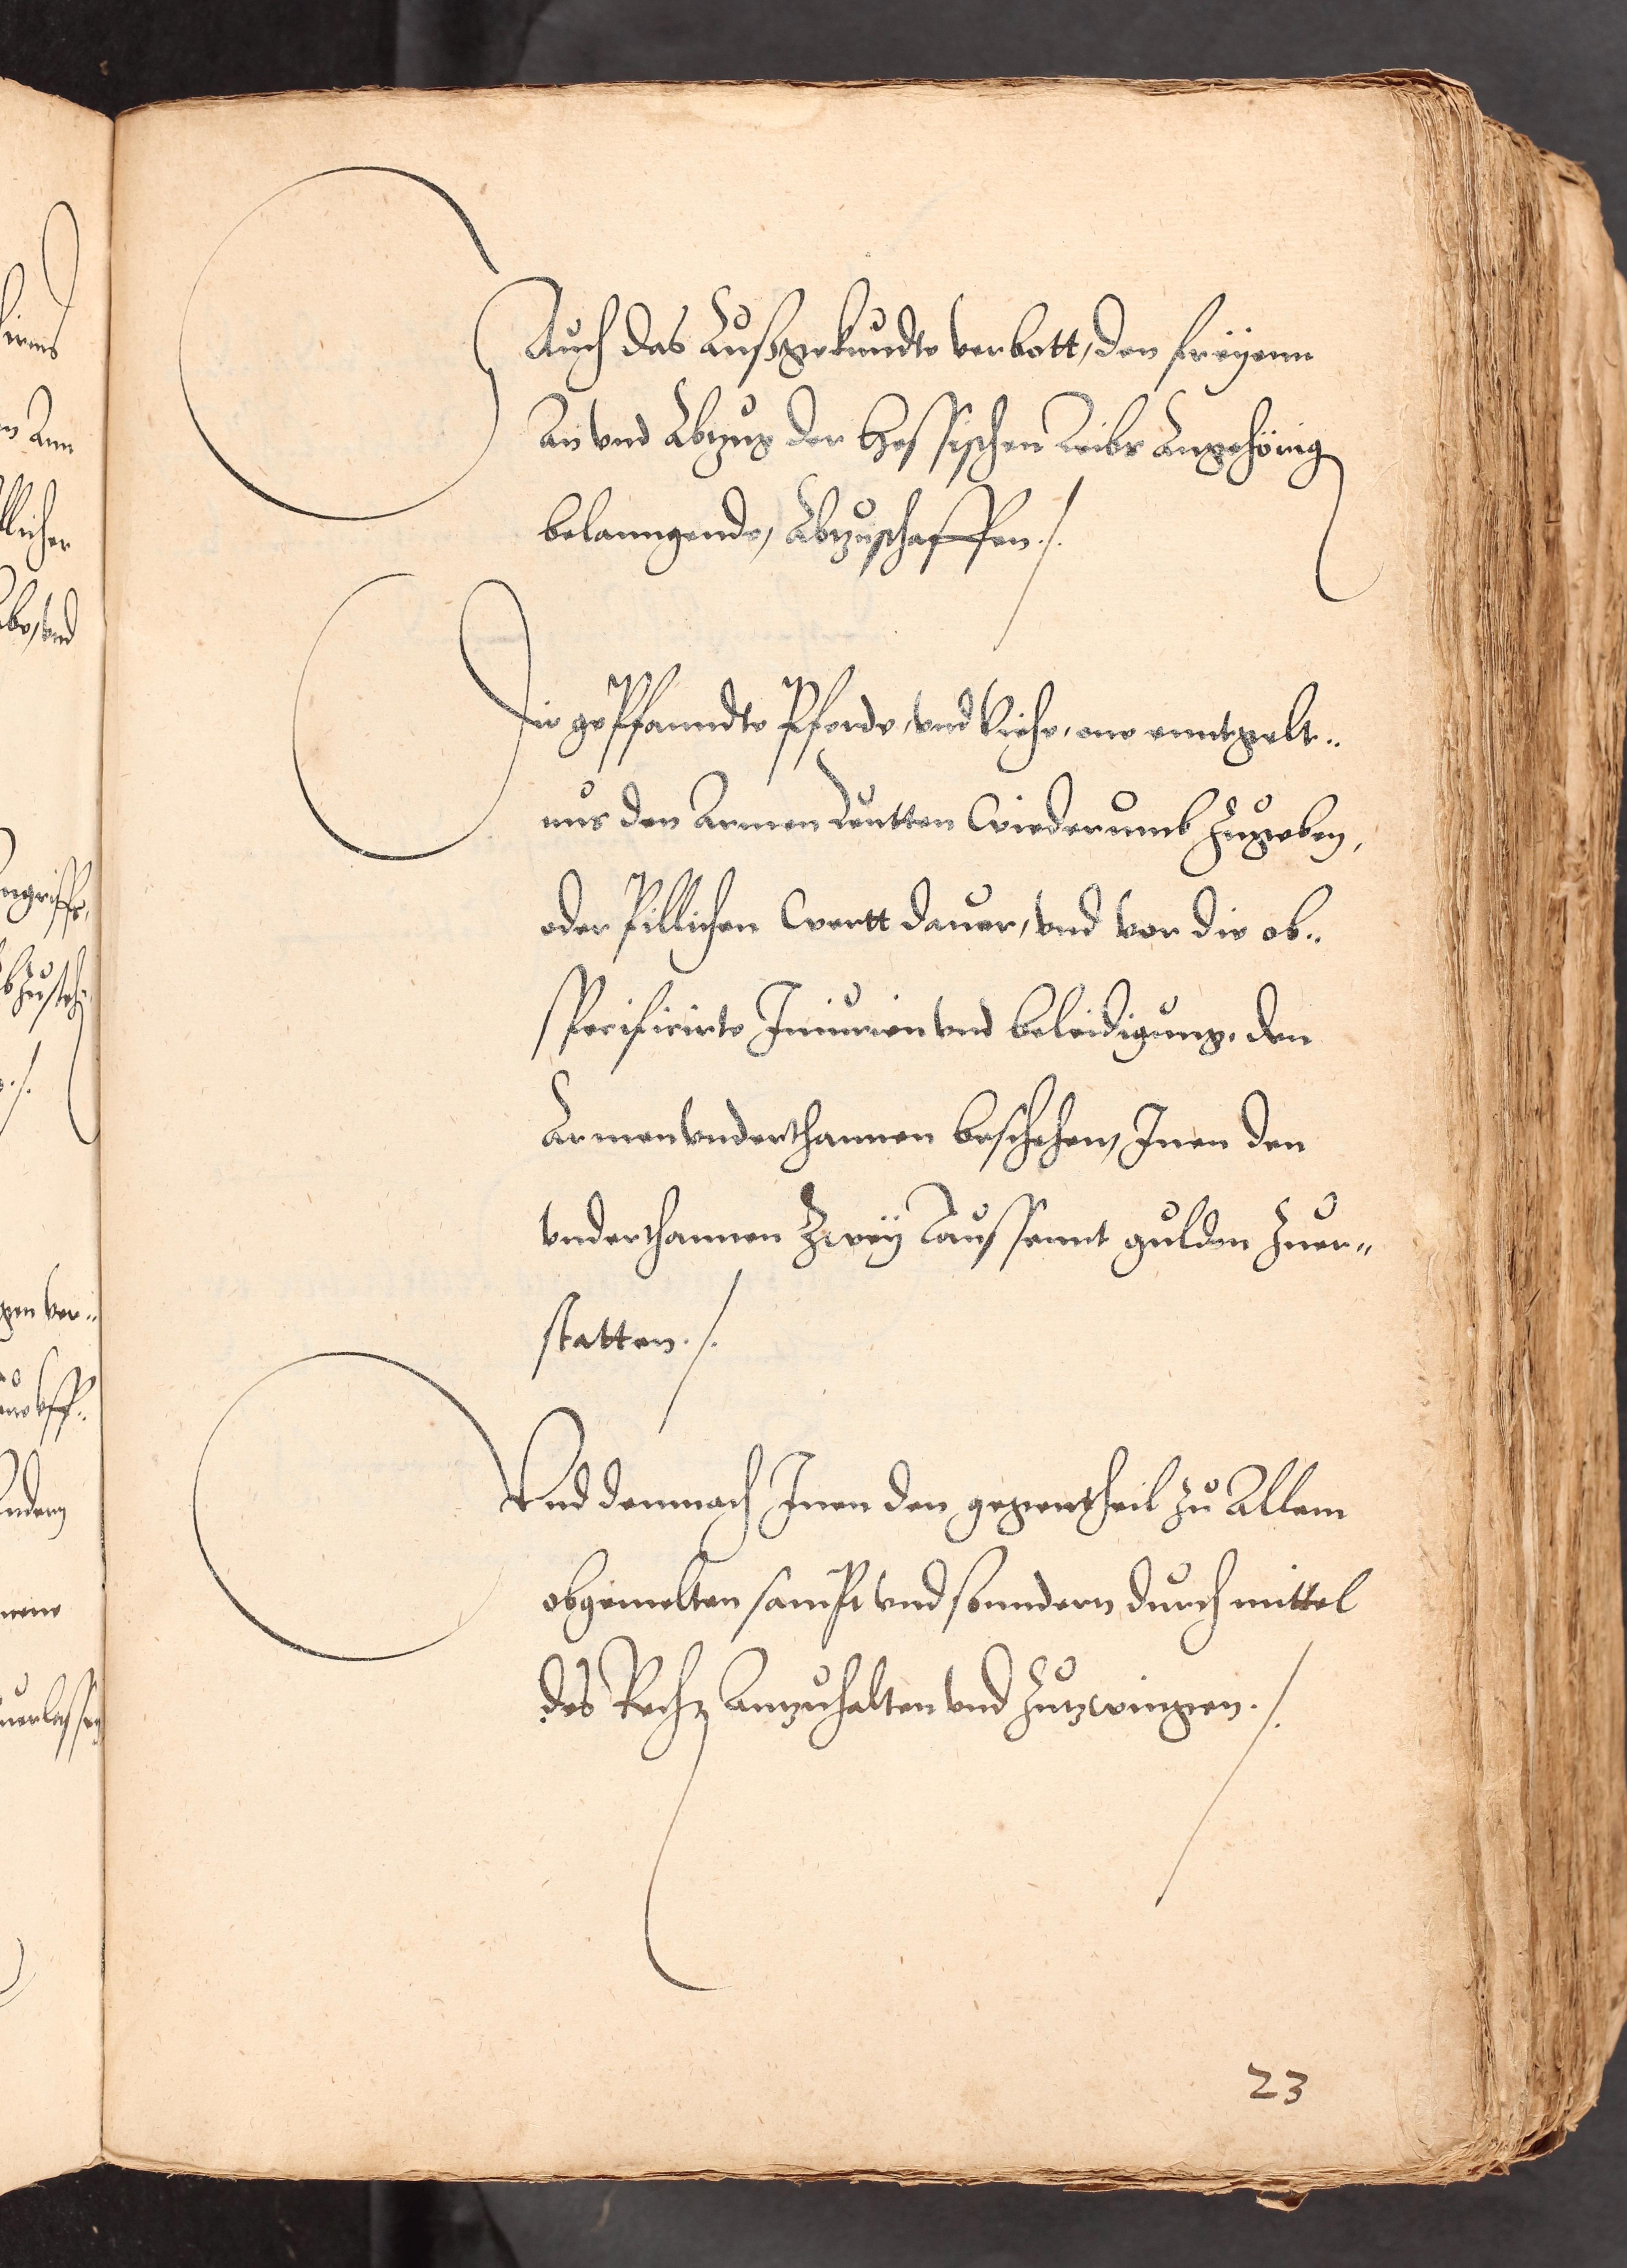 Auch das Außgekundte verbott, den freÿenn
An vnd Abzug der Hessischen Leibs Angehörig
belanngende, Abzuschaffen ./.
Die gepfanndte Pferde, vnd Viehe, one enntgelt„
nus den Armen Leutten Wiederumb Zugeben,
oder pillichen Wertt dauor, vnd vor die ob„
specificirte Iniurien vnd beleidigung, den
Armen vnderthannen beschehen, Inen den
vnderthannen Zweÿ Taussennt gulden Zuer„
statten ./.
Vnd demnach Inen den gegentheil zu Allem
obgemelten sampt vnd sonndern durch mittel
des Rechz Anzuhalten vnd Zuzwingen ./.
23